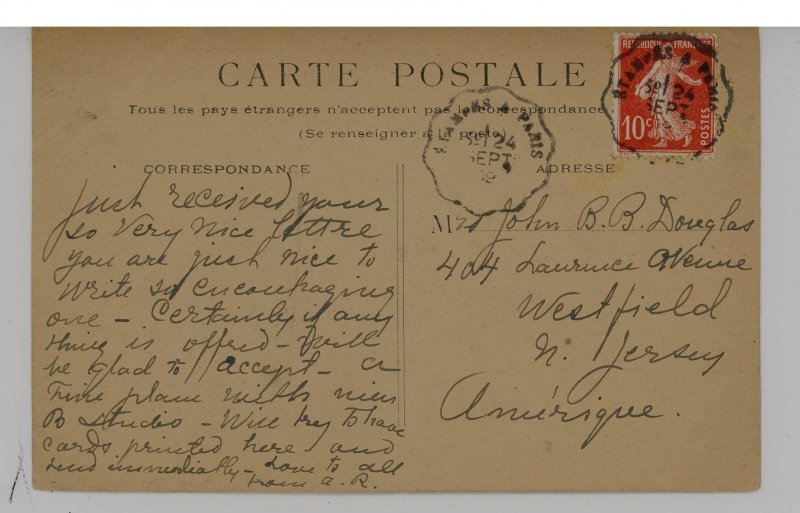 CARTE POSTALE
Tous les pays étrangers n'acceptent pas la correspondance
(Se renseigner à la poste)
CORRESPONDANCE
Just received your
so very nice lettre
you are just nice to
write so encouraging
one - Certainly if any
thing is offered - I will
be glad to accept - a
Fine plan with
B Studio - Will try to have
cards printed here - and
send immediately - Love to all
from A. R.
ADRESSE
Mrs John B. B. Douglas
404 Laurence Avenue
Westfield
N. Jersey
Amérique.
REPUBLIQUE FRANÇAISE
10c
POSTES
ETAMPES A PARIS
24
SEPT
ETAMPES A PARIS
24
SEPT